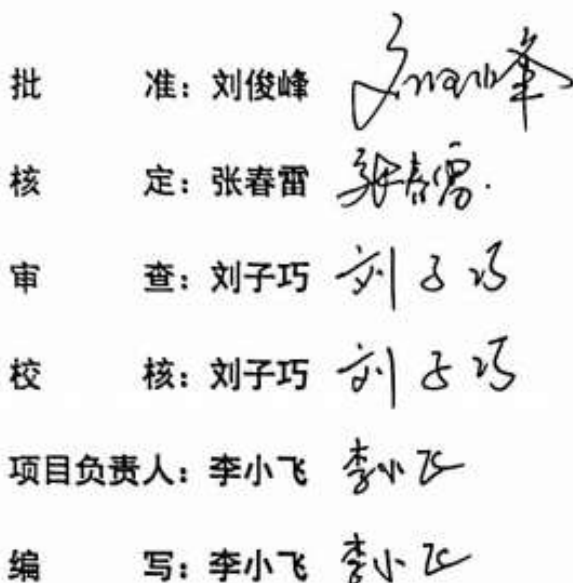 批 准：刘俊峰 刘俊峰
核 定：张春雷 张春雷
审 查：刘子巧 刘子巧
校 核：刘子巧 刘子巧
项目负责人：李小飞 李小飞
编 写：李小飞 李小飞